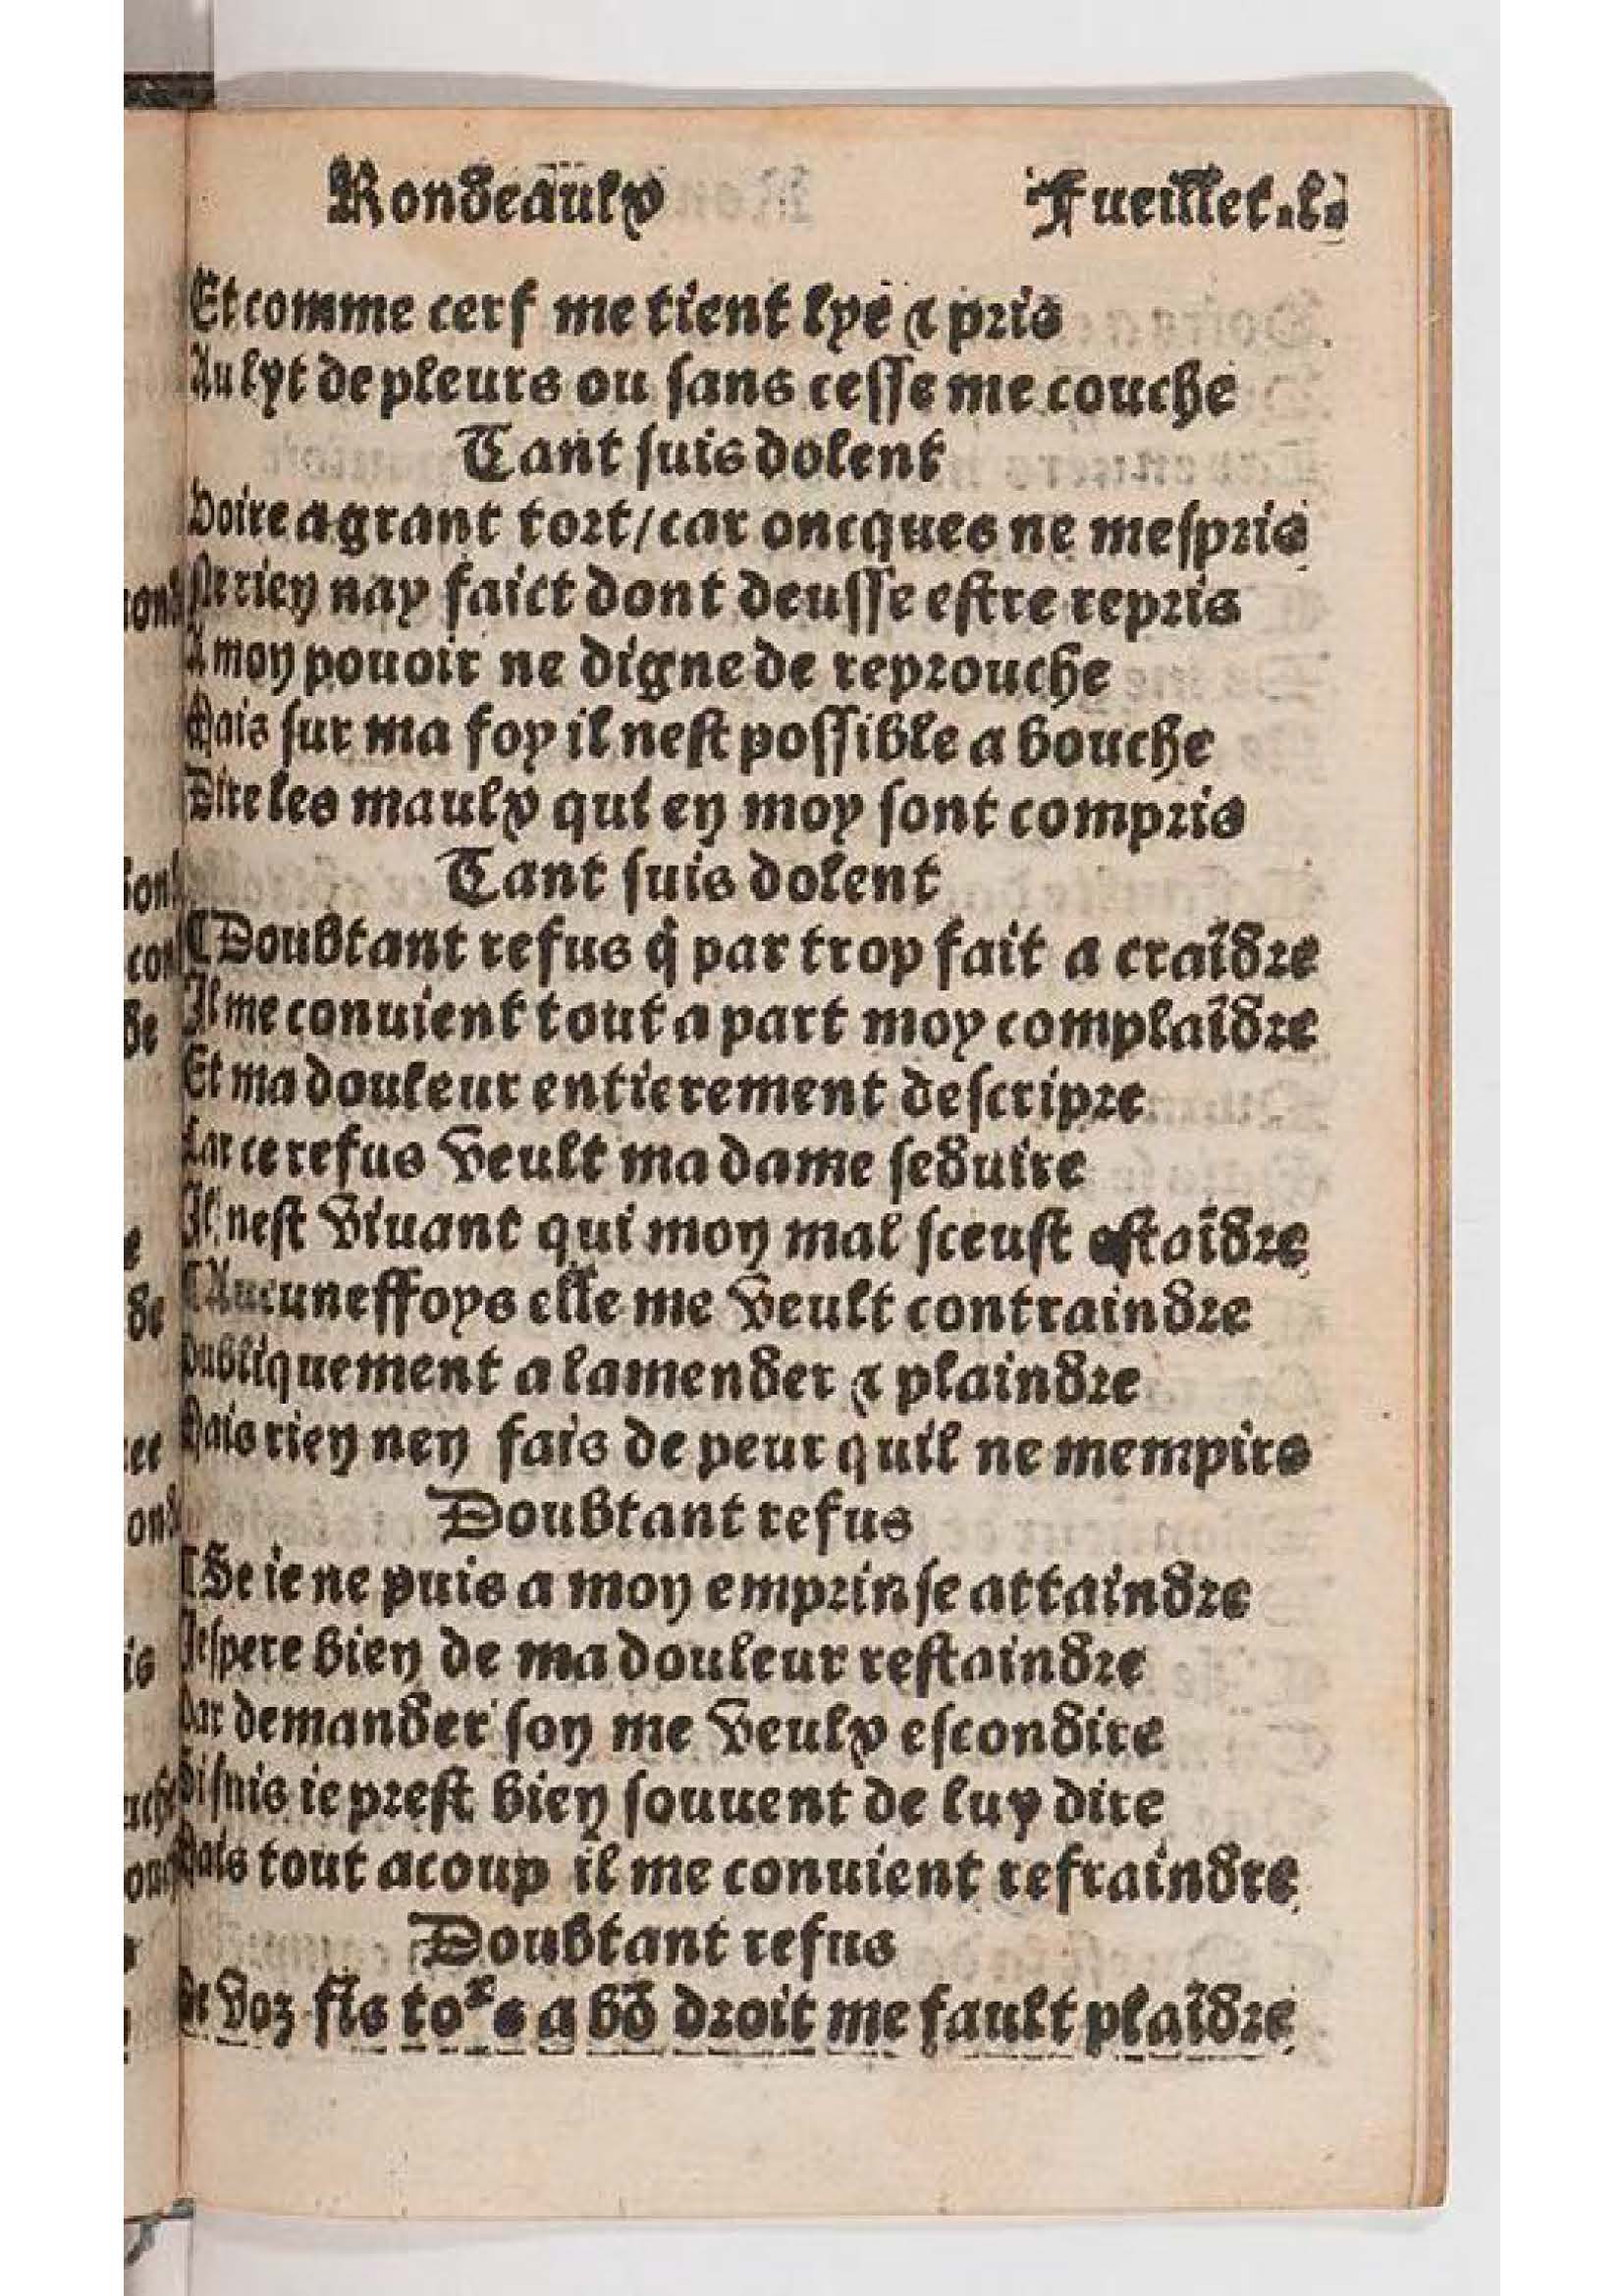 Rondeaulx Fueillet.l.
Et comme cerf me tient lye & pris
Au lyt de pleurs ou sans cesse me couche
Tant suis dolent
Voire a grant tort/car oncques ne mespris
Ne rien nay faict dont deusse estre repris
A mon pouoir ne digne de reprouche
Mais sur ma foy il nest possible a bouche
Dire les maulx qui en moy sont compris
Tant suis dolent
⸿Doubtant refus q̃ par trop fait a craĩdre
Il me conuient tout a part moy complaĩdre
Et ma douleur entierement descripre
Car ce refus veult ma dame seduire
Il nest viuant qui mon mal sceust estaĩdre
⸿Aucuneffoys elle me veult contraindre
Publiquement a lamender & plaindre
Mais rien nen fais de peur quil ne mempire
Doubtant refus
⸿Se ie ne puis a mon emprinse attaindre
Iespere bien de ma douleur restaindre
Par demander son me veulx escondire
Si suis ie prest bien souuent de luy dire
Mais tout acoup il me conuient refraindre
Doubtant refus
De voz fis toʳs a bõ droit me fault plaĩdre